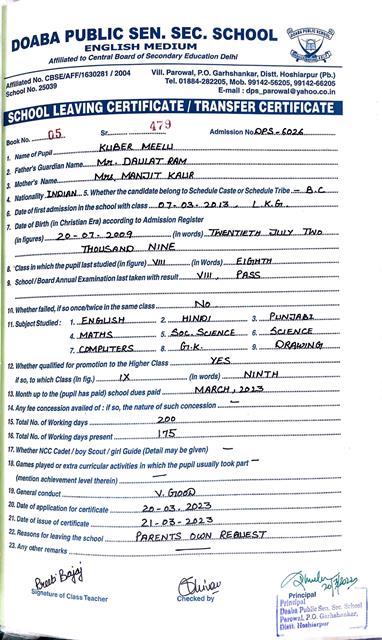 DOABA PUBLIC SEN. SEC. SCHOOL
ENGLISH MEDIUM
Affiliated to Central Board of Secondary Education Delhi
Affiliated No. CBSE/AFF/1630281 / 2004
School No. 25039
Vill. Parowal, P.O. Garhshankar, Distt. Hoshiarpur (Pb.)
Tel. 01884-282205, Mob. 99142-56205, 99142-66205
E-mail : dps_parowal@yahoo.co.in
SCHOOL LEAVING CERTIFICATE / TRANSFER CERTIFICATE
Book No. 05 Sr. 479 Admission No. DPS-6026
1. Name of Pupil KUBER MEELU
2. Father's Guardian Name Mr. DAULAT RAM
3. Mother's Name Mrs. MANJIT KAUR
4. Nationality INDIAN 5. Whether the candidate belong to Schedule Caste or Schedule Tribe - B.C
6. Date of first admission in the school with class 07-03-2013, L.K.G.
7. Date of Birth (in Christian Era) according to Admission Register
(in figures) 20-07-2009 (in Words) TWENTIETH JULY TWO
THOUSAND NINE
8. Class in which the pupil last studied (in figure) VIII (in Words) EIGHTH
9. School / Board Annual Examination last taken with result VIII, PASS
10. Whether failed, if so once/twice in the same class No
11. Subject Studied : 1. ENGLISH 2. HINDI 3. PUNJABI
4. MATHS 5. SOC. SCIENCE 6. SCIENCE
7. COMPUTERS 8. G.K. 9. DRAWING
12. Whether qualified for promotion to the Higher Class YES
if so, to which Class (in fig.) IX (in Words) NINTH
13. Month up to the (pupil has paid) school dues paid MARCH, 2023
14. Any fee concession availed of : if so, the nature of such concession —
15. Total No. of Working days 200
16. Total No. of Working days present 175
17. Whether NCC Cadet / boy Scout / girl Guide (Detail may be given) —
18. Games played or extra curricular activities in which the pupil usually took part —
(mention achievement level therein) —
19. General conduct V. GOOD
20. Date of application for certificate 20-03-2023
21. Date of issue of certificate 21-03-2023
22. Reasons for leaving the school PARENTS OWN REQUEST
23. Any other remarks —
Signature of Class Teacher
Checked by
Principal
Principal
Doaba Public Sen. Sec. School
Parowal, P.O. Garhshankar,
Distt. Hoshiarpur